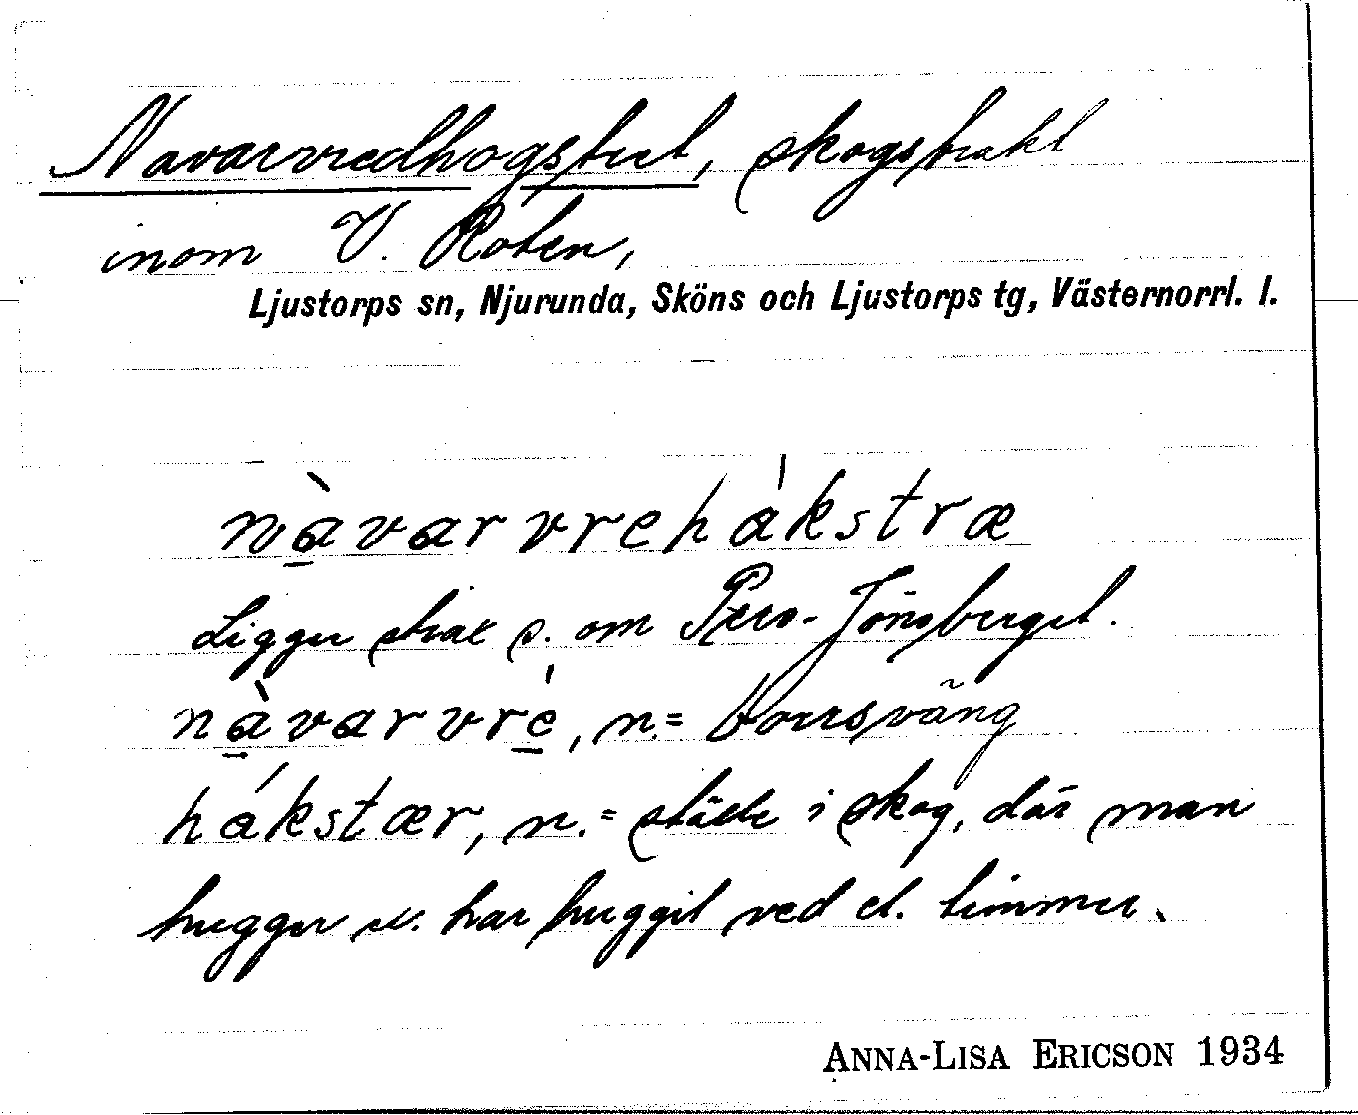 Navarvredhogstret, skogstrakt
inom V. Roten,
Ljustorps sn, Njurunda, Sköns och Ljustorps tg, Västernorrl. l.
nàvarvrehákstræ
Ligger strax s. om Pers-Jönsberget.
nàvarvrè, n. = borrsväng
hákstær, n. = ställe i skog, där man
hugger el. har huggit ved el. timmer.
ANNA-LISA ERICSON 1934